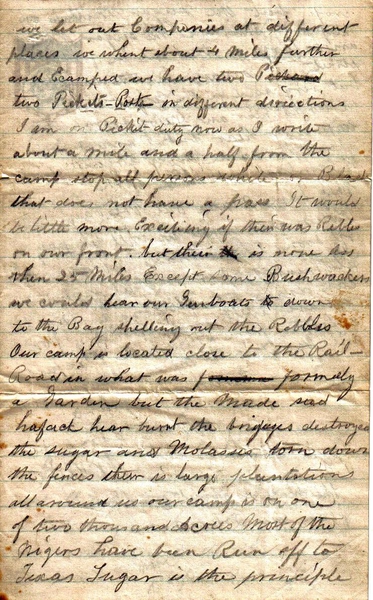 we let out Companies at different
places we whent about 4 Miles further
and Ecamped we have two
two Pickets-Posts in different dirrections
I am on Picket duty now as I write
about a mile and a half from the
camp stop all persons white or Black
that does not have a pass It would
be little more Exciting if their was Rebbs
on our front. but their is now
then 25 Miles Except some Bushwackers
we could hear our Gunboats down
to the Bay shelling out the Rebbls
Our camp is located close to the Rail-
Road in what was formely
a Garden but the Made
hear burnt the briges destroyed
the sugar and Molasses torn down
the fences ther is large plantations
all around us our camp is on one
of two thousand Acres Most of the
Nigers have been Run off to
Texas Sugar is the principle